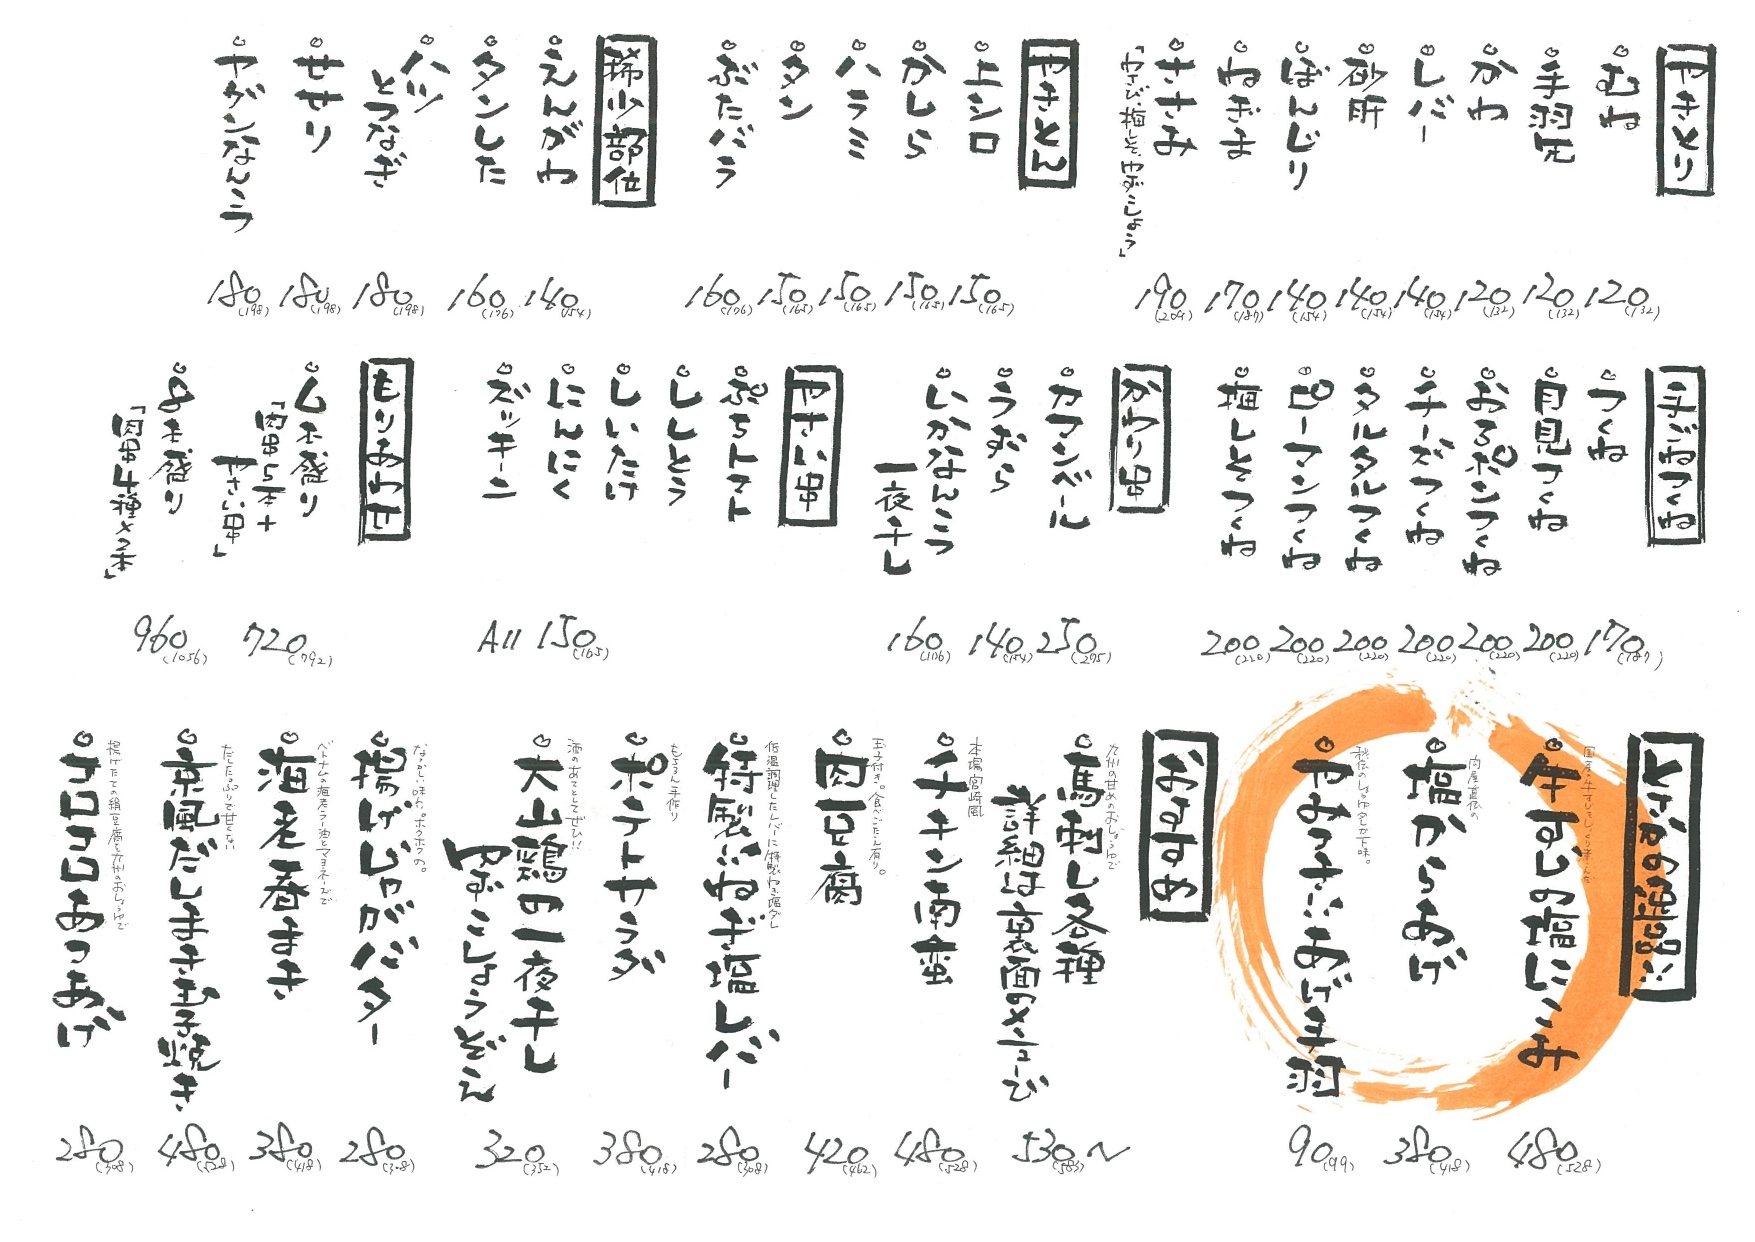 やきとり
むね
120(132)
手羽先
120(132)
かわ
120(132)
レバー
140(154)
砂肝
140(154)
ぼんじり
140(154)
ねぎま
170(187)
ささみ
「わさび、梅しそ、ゆずこしょう」
190(209)
やきとん
上シロ
150(165)
かしら
150(165)
ハラミ
150(165)
タン
150(165)
ぶたバラ
160(176)
稀少部位
えんがわ
140(154)
タンした
160(176)
ハツ
とつなぎ
180(198)
せせり
180(198)
ヤゲンなんこつ
180(198)
手ごねつくね
つくね
170(187)
月見つくね
200(220)
おろポンつくね
200(220)
チーズつくね
200(220)
タルタルつくね
200(220)
ピーマンつくね
200(220)
梅しそつくね
200(220)
かわり串
カマンベール
250(275)
うずら
140(154)
いかなんこつ
一夜干し
160(176)
やさい串
ぷちトマト
ししとう
しいたけ
にんにく
ズッキーニ
All 150(165)
もりあわせ
6本盛り
「肉串5本+
やさい串」
720(792)
8本盛り
「肉串4種×2本」
960(1056)
牛すじの塩にこみ
480(528)
肉屋直伝の
塩からあげ
380(418)
秘伝のしょうゆダレが下味。
やみつき!!あげ手羽
90(99)
おすすめ
九州の甘めのおしょうゆで
馬刺し各種
詳細は裏面のメニューび
530(583)〜
本場宮崎風
チキン南蛮
480(528)
玉子付き。食べごたえ有り。
肉豆腐
420(462)
低温調理したレバーに特製ねぎ塩ダレ
特製ねぎ塩レバー
280(308)
もちろん手作り
ポテトサラダ
380(418)
酒のあてとしてぜひ!!
大山鶏の一夜干し
ゆずこしょうぞえ
320(352)
なつかしい味わい。ホクホクの。
揚げじゃがバター
280(308)
ベトナムの海老ラー油とマヨネーズで
海老春まき
380(418)
だしたっぷりで甘くない
京風だしまき玉子焼き
480(528)
揚げたての絹豆腐を九州のおしょうゆで
コロコロあつあげ
280(308)